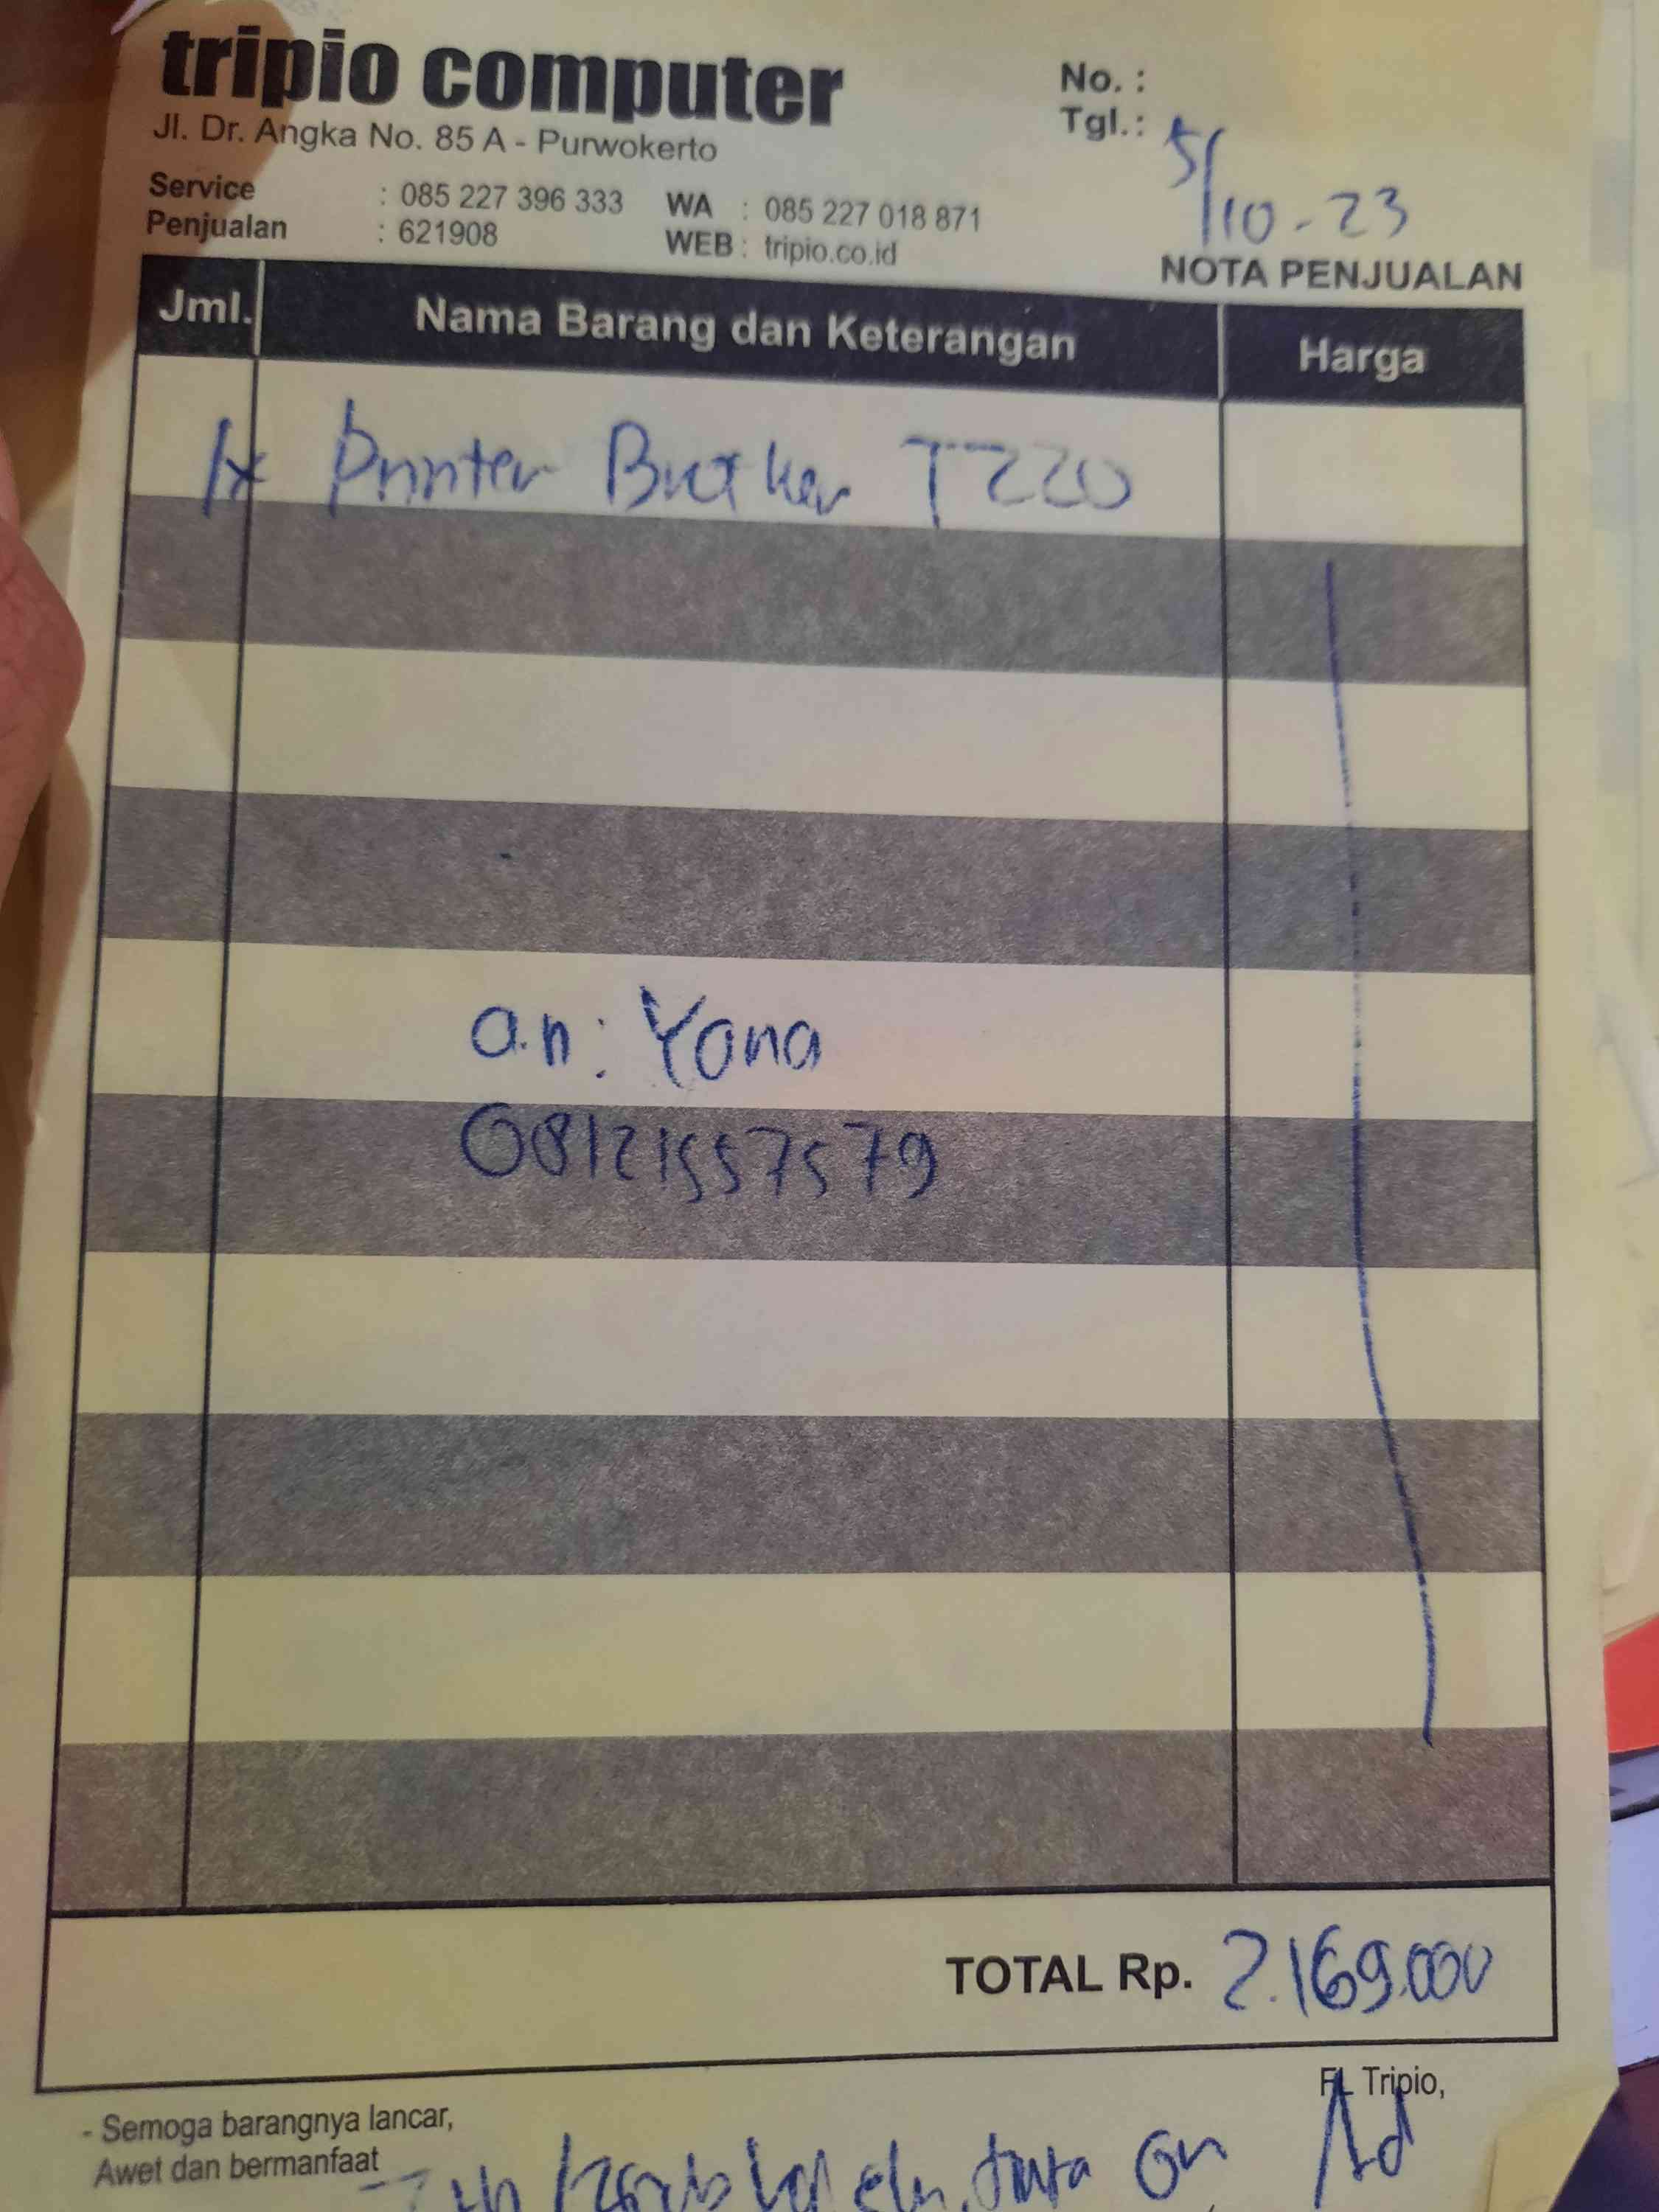 tripio computer
Jl. Dr. Angka No. 85 A - Purwokerto
Service : 085 227 396 333 WA : 085 227 018 871
Penjualan : 621908 WEB : tripio.co.id
No. :
Tgl. : 5/10-23
NOTA PENJUALAN
Jml. Nama Barang dan Keterangan Harga
1x Printer Brother T220
a.n: Yona
08121557579
TOTAL Rp. 2.169.000
FL Tripio,
- Semoga barangnya lancar,
Awet dan bermanfaat